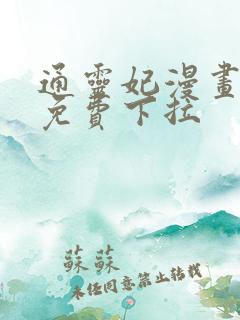 通靈妃漫畫
免費下拉
蘇蘇
未經同意禁止轉載